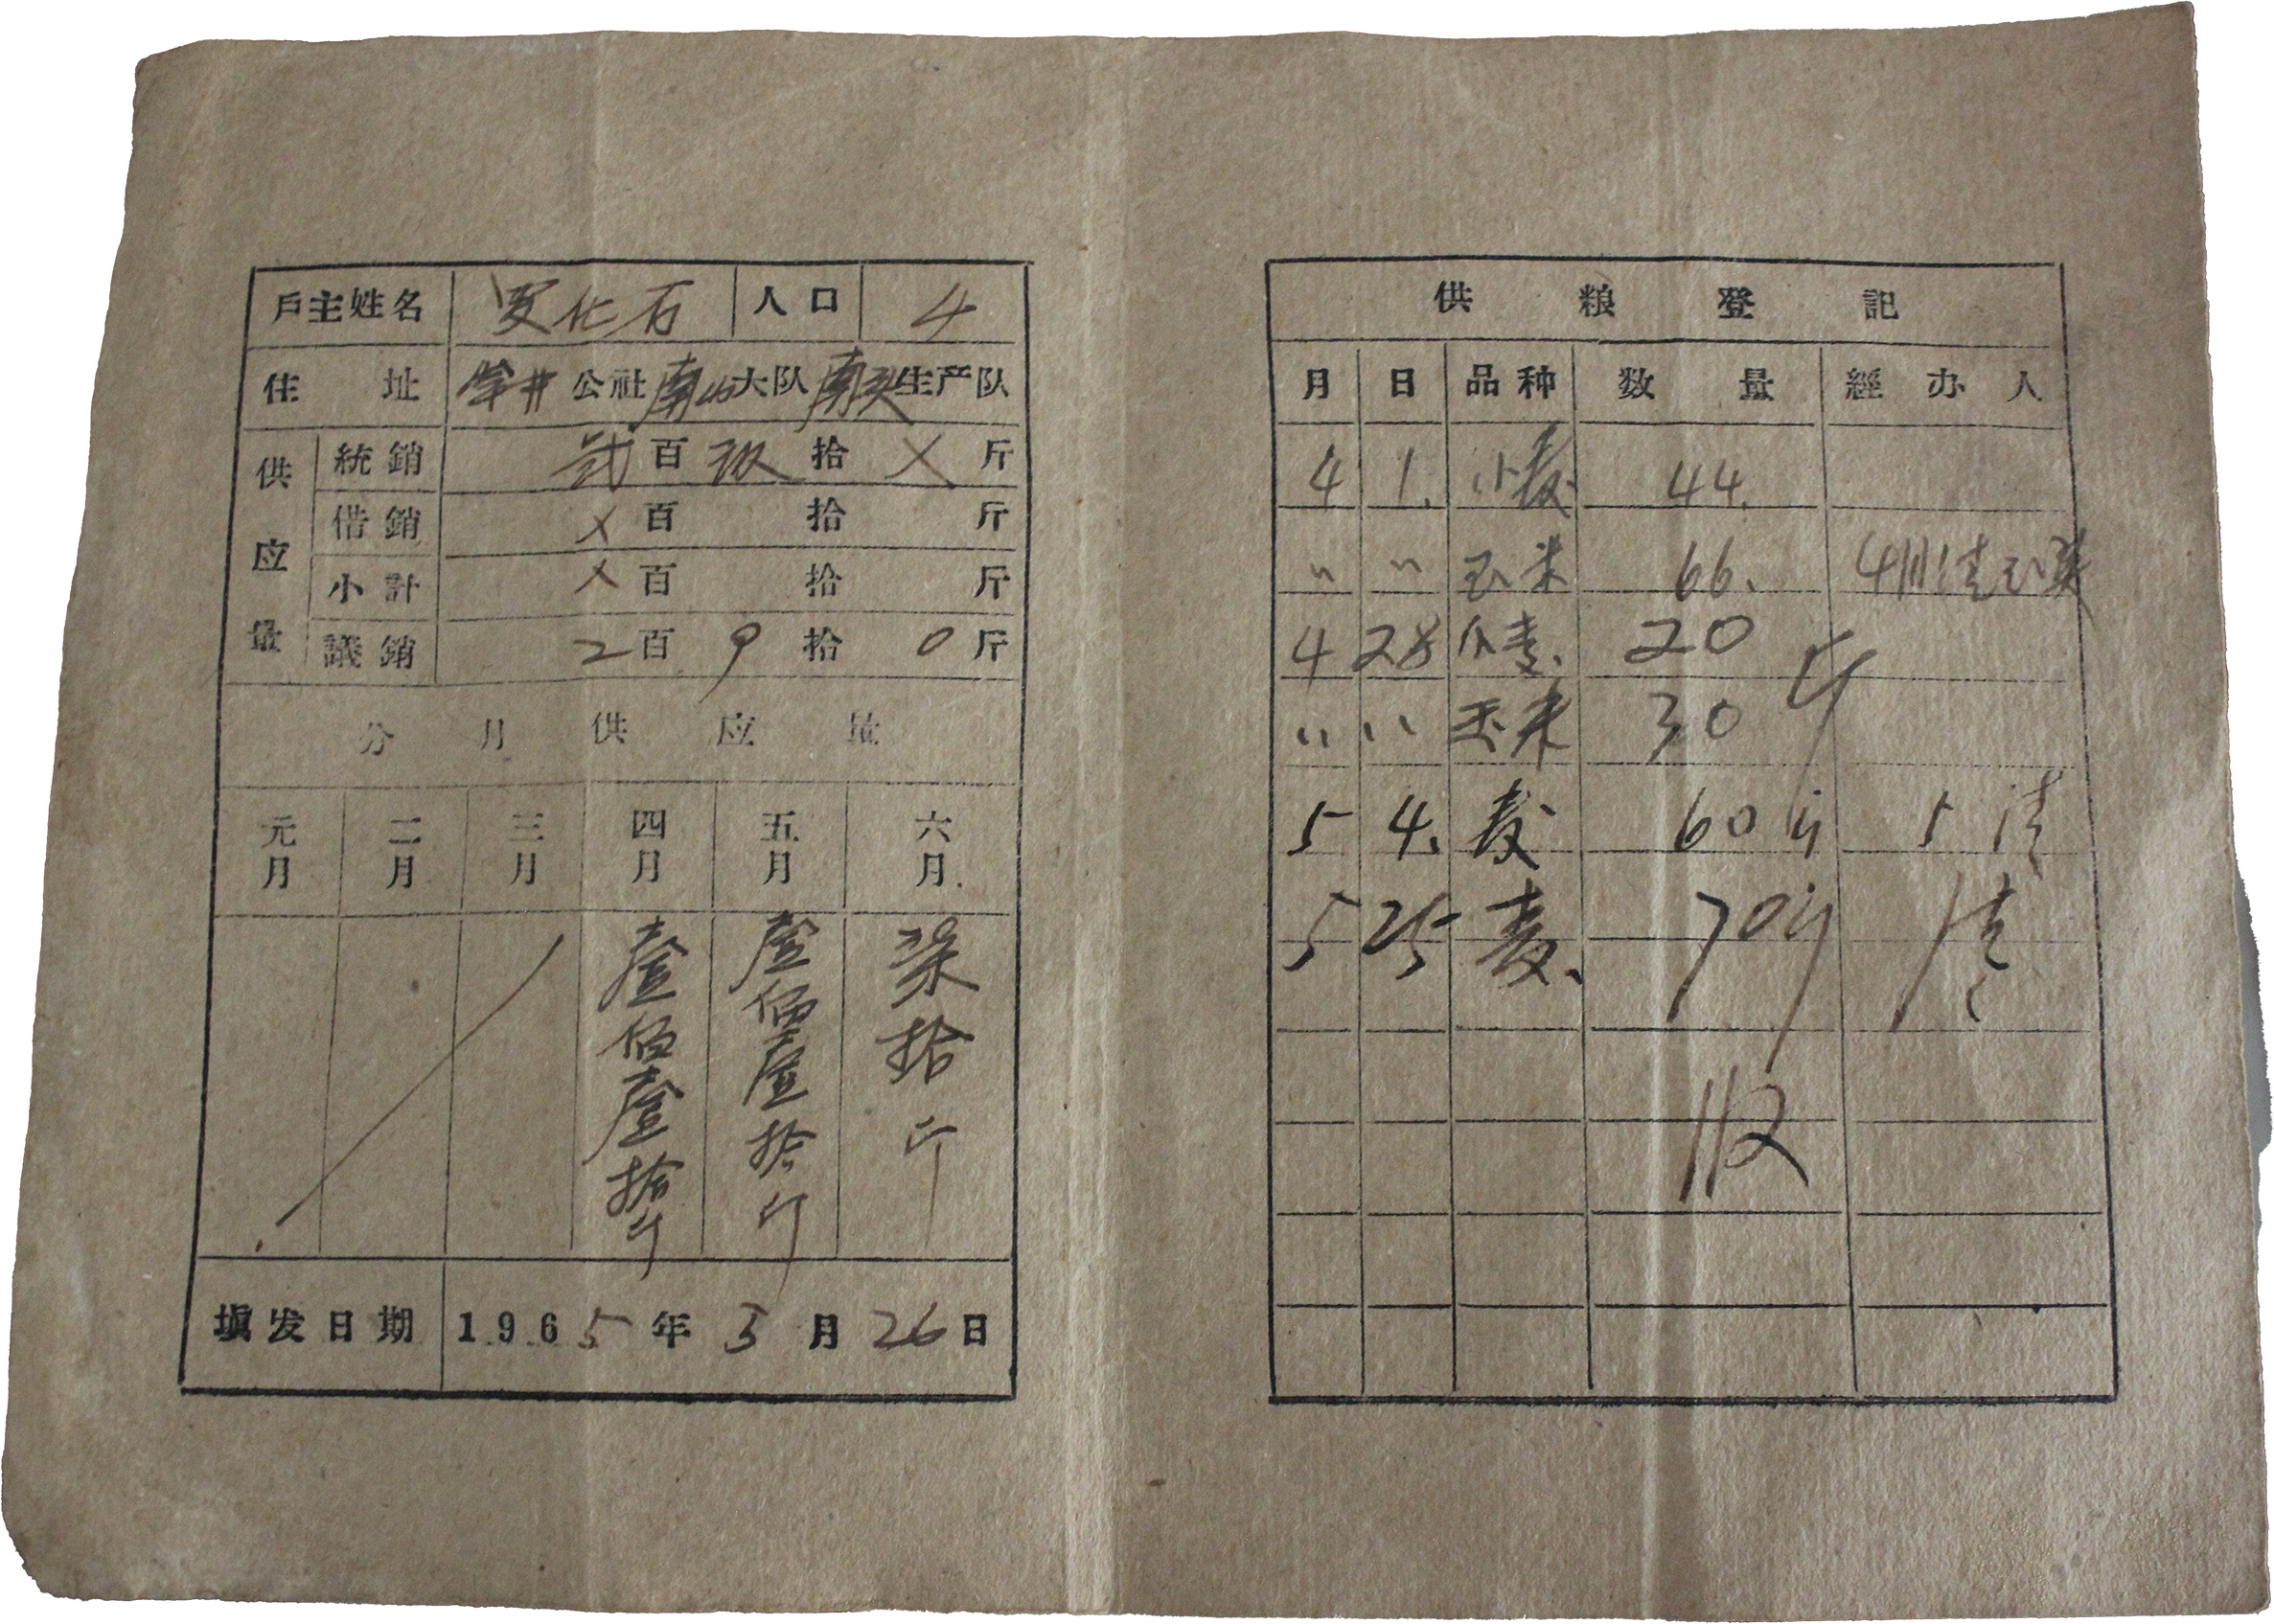 戶主姓名 化石 人口 4
住址 公社 南 大队 南 生产队
供应量
統銷 弍百玖拾×斤
借銷 ×百 拾 斤
小計 ×百 拾 斤
議銷 2百9拾0斤
分月供应量
元月 二月 三月 四月 五月 六月
壹佰壹拾斤 壹佰壹拾斤 柒拾斤
填发日期 1965年3月26日
供粮登記
月 日 品种 数量 經办人
4 1. 小麦 44.
〃 〃 玉米 66. 4月清
4 28 小麦 20
〃 〃 玉米 30 斤
5 4. 麦 60斤 5清
5 25 麦 70斤 清